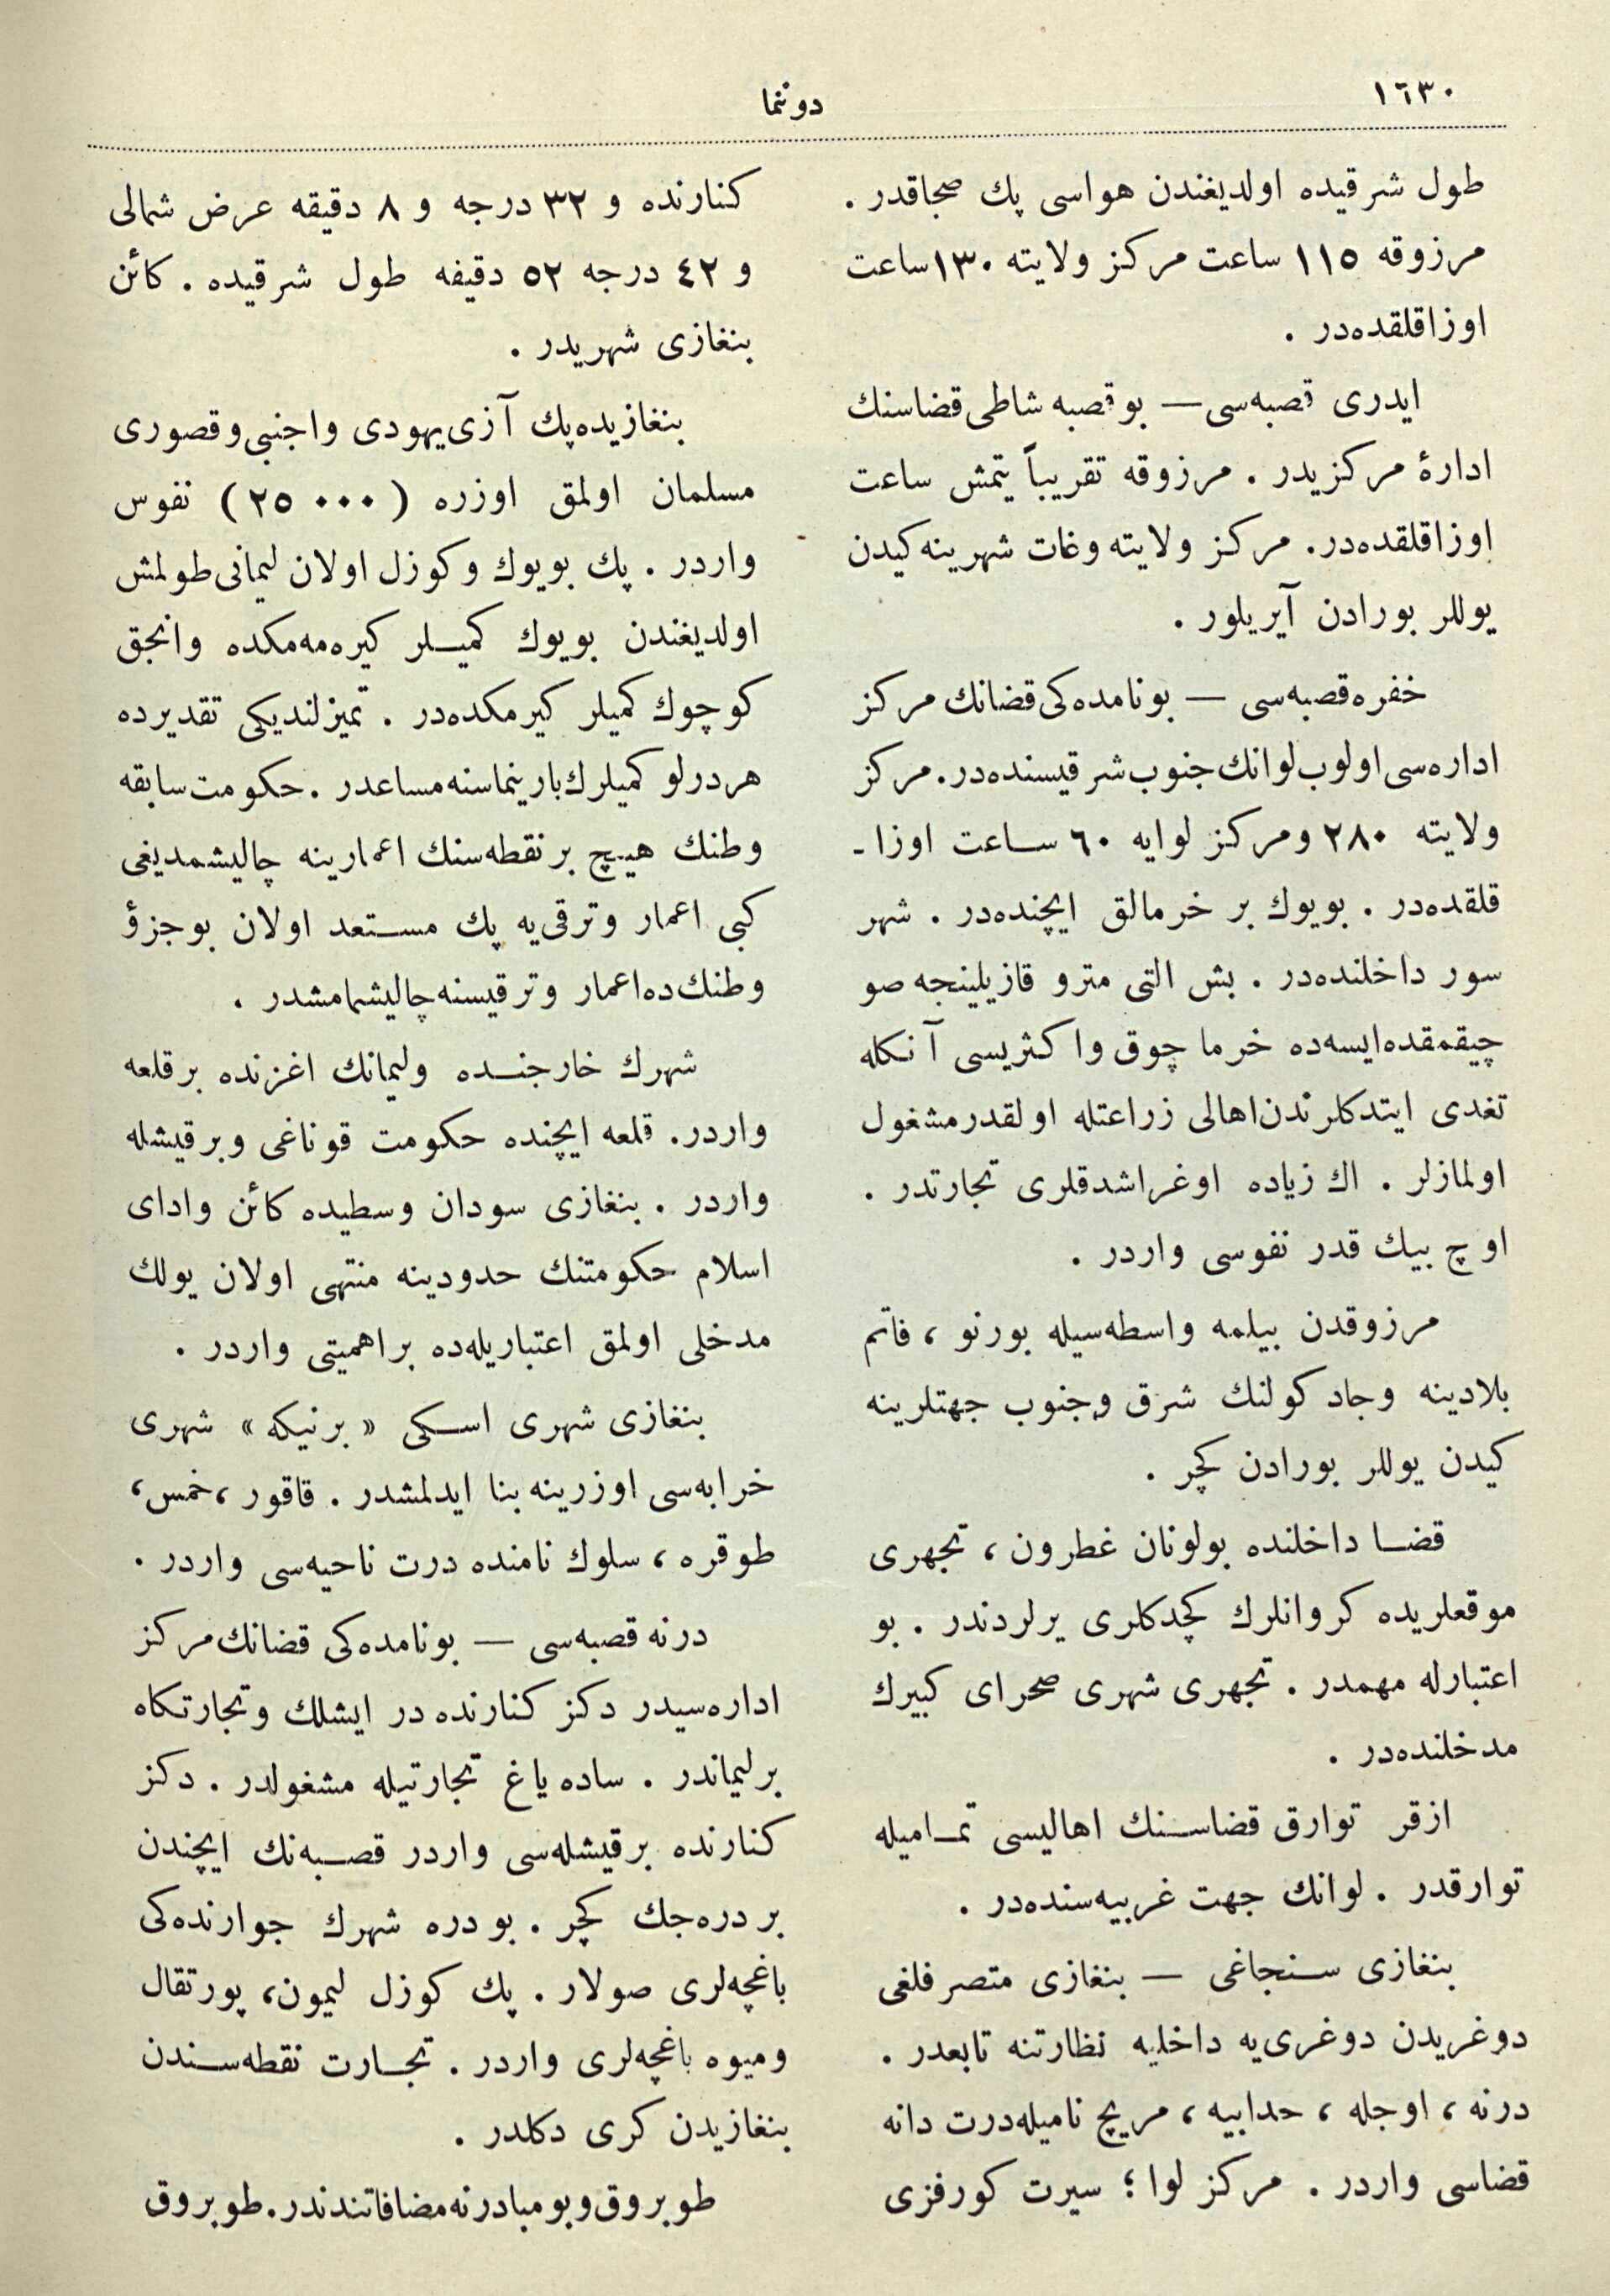 ١٦٣٠
دوننما
طول شرقيده اولديغندن هواسى پك صجاقدر .
مرزوقه ١١٥ ساعت مركز ولايته ١٣٠ ساعت
اوزاقلقده‌در .
ايدرى قصبه‌سى — بوقصبه شاطى قضاسنك
ادارۀ مركزيدر . مرزوقه تقريباً يتمش ساعت
اوزاقلقده‌در. مركز ولايته وغات شهرينه كيدن
يوللر بورادن آيريلور .
خفره قصبه‌سى — بونامده‌كى قضانك مركز
اداره‌سى اولوب لوانك جنوب شرقيسنده‌در. مركز
ولايته ٢٨٠ ومركز لوايه ٦٠ ساعت اوزا-
قلقده‌در . بويوك بر خرمالق ايچنده‌در . شهر
سور داخلنده‌در . بش التى مترو قازيلينجه صو
چيقمقده‌ايسه‌ده خرما چوق واكثريسى آنكله
تغدى ايتدكلرندن اهالى زراعتله اولقدر مشغول
اولمازلر . اك زياده اوغراشدقلرى تجارتدر .
اوچ بيك قدر نفوسى واردر .
مرزوقدن بيلمه واسطه‌سيله بورنو ، فاتم
بلادينه وجاد كولنك شرق وجنوب جهتلرينه
كيدن يوللر بورادن كچر .
قضا داخلنده بولونان غطرون ، تجهرى
موقعلريده كروانلرك كچدكلرى يرلردندر . بو
اعتبارله مهمدر . تجهرى شهرى صحراى كبيرك
مدخلنده‌در .
ازقر توارق قضاسنك اهاليسى تماميله
توارقدر . لوانك جهت غربيه‌سنده‌در .
بنغازى سنجاغى — بنغازى متصرفلغى
دوغريدن دوغرى‌يه داخليه نظارتنه تابعدر .
درنه ، اوجله ، حدابيه ، مريچ ناميله درت دانه
قضاسى واردر . مركز لوا ؛ سيرت كورفزى
كنارنده و ٣٢ درجه و ٨ دقيقه عرض شمالى
و ٤٢ درجه ٥٢ دقيفه طول شرقيده . كائن
بنغازى شهريدر .
بنغازيده پك آزى يهودى واجنبى وقصورى
مسلمان اولمق اوزره ( ٢٥٠٠٠ ) نفوس
واردر . پك بويوك وكوزل اولان ليمانى طولمش
اولديغندن بويوك كميلر كيره‌مه‌مكده وانجق
كوچوك كميلر كيرمكده‌در . تميزلنديكى تقديرده
هردرلو كميلرك بارينماسنه مساعدر . حكومت سابقه
وطنك هيچ بر نقطه‌سنك اعمارينه چاليشمديغى
كبى اعمار وترقى‌يه پك مستعد اولان بوجزؤ
وطنك ده اعمار وترقيسنه چاليشمامشدر .
شهرك خارجنده وليمانك اغزنده برقلعه
واردر. قلعه ايچنده حكومت قوناغى وبرقيشله
واردر . بنغازى سودان وسطيده كائن واداى
اسلام حكومتنك حدودينه منتهى اولان يولك
مدخلى اولمق اعتباريله‌ده براهميتى واردر .
بنغازى شهرى اسكى « برنيكه » شهرى
خرابه‌سى اوزرينه بنا ايدلمشدر . قاقور ، خمس،
طوقره ، سلوك نامنده درت ناحيه‌سى واردر .
درنه قصبه‌سى — بونامده‌كى قضانك مركز
اداره‌سيدر دكز كنارنده در ايشلك وتجارتكاه
برليماندر . ساده ياغ تجارتيله مشغولدر . دكز
كنارنده برقيشله‌سى واردر قصبه‌نك ايچندن
بر دره‌جك كچر . بودره شهرك جوارنده‌كى
باغچه‌لرى صولار . پك كوزل ليمون، پورتقال
وميوه باغچه‌لرى واردر . تجارت نقطه‌سندن
بنغازيدن كرى دكلدر .
طوبروق وبومبا درنه مضافاتندندر. طوبروق